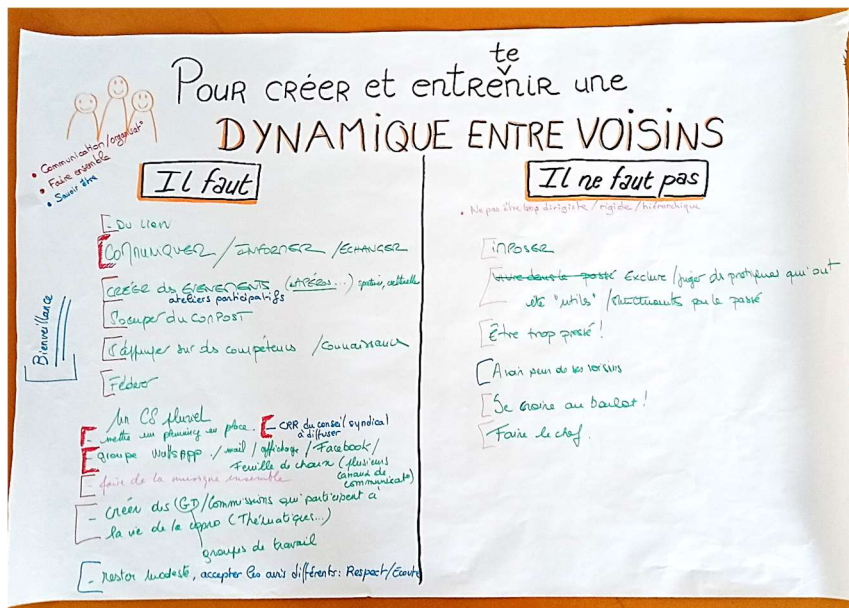 Pour créer et entretenir une
DYNAMIQUE ENTRE VOISINS
• Communication/organisat°
• Faire ensemble
• Savoir être
Il faut
- Du lien
Communiquer / Informer / Echanger
Créer ds évènements (apéros...) sportifs, culturelle
ateliers participatifs
S'occuper du compost
S'appuyer sur ds compétences / connaissances
Fédérer
Bienveillance
Un CS pluriel
- mettre un planning en place.
- CRR du conseil syndical
à diffuser
- groupe WattsApp / mail / affichage / Facebook /
Feuille de choux (plusieurs
canaux de
communicat°)
- faire de la musique ensemble
- Créer des GD/Commissions qui participent à
la vie de la copro (Thématiques...)
groupes de travail
- rester modeste, accepter les avis différents : Respect/Ecoute
Il ne faut pas
• Ne pas être trop dirigiste / rigide / hiérarchique
imposer
Vivre dans le passé Exclure / juger ds pratiques qui ont
été "utils" / structurants par le passé
Être trop pressé !
Avoir peur de ses voisins
Se croire au boulot !
Faire le chef.